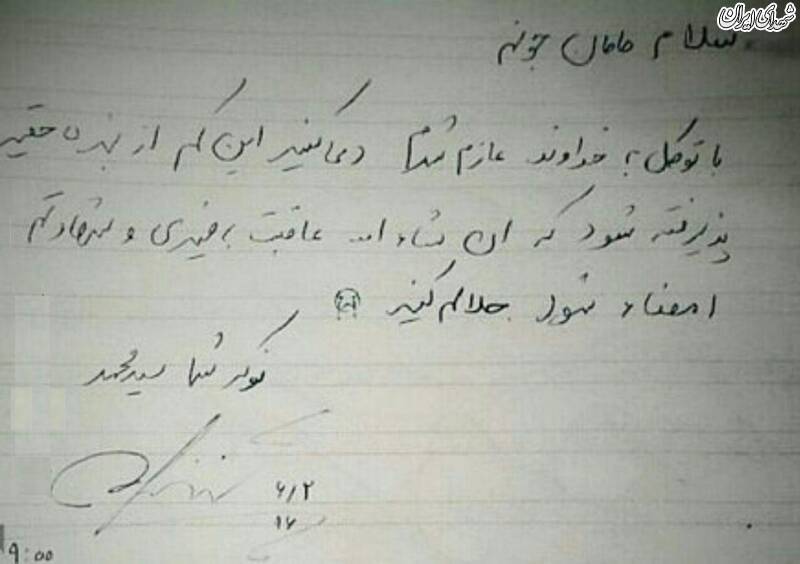 شهدای ایران
سلام مامان جونم
با توکل به خداوند عازم شدم دعا کنید این کم از بنده حقیر
پذیرفته شود که ان شاء الله عاقبت بخیری و شهادتم
امضاء شود حلالم کنید
نوکر شما سید محمد
۶/۲
۱۶
۹:۰۰